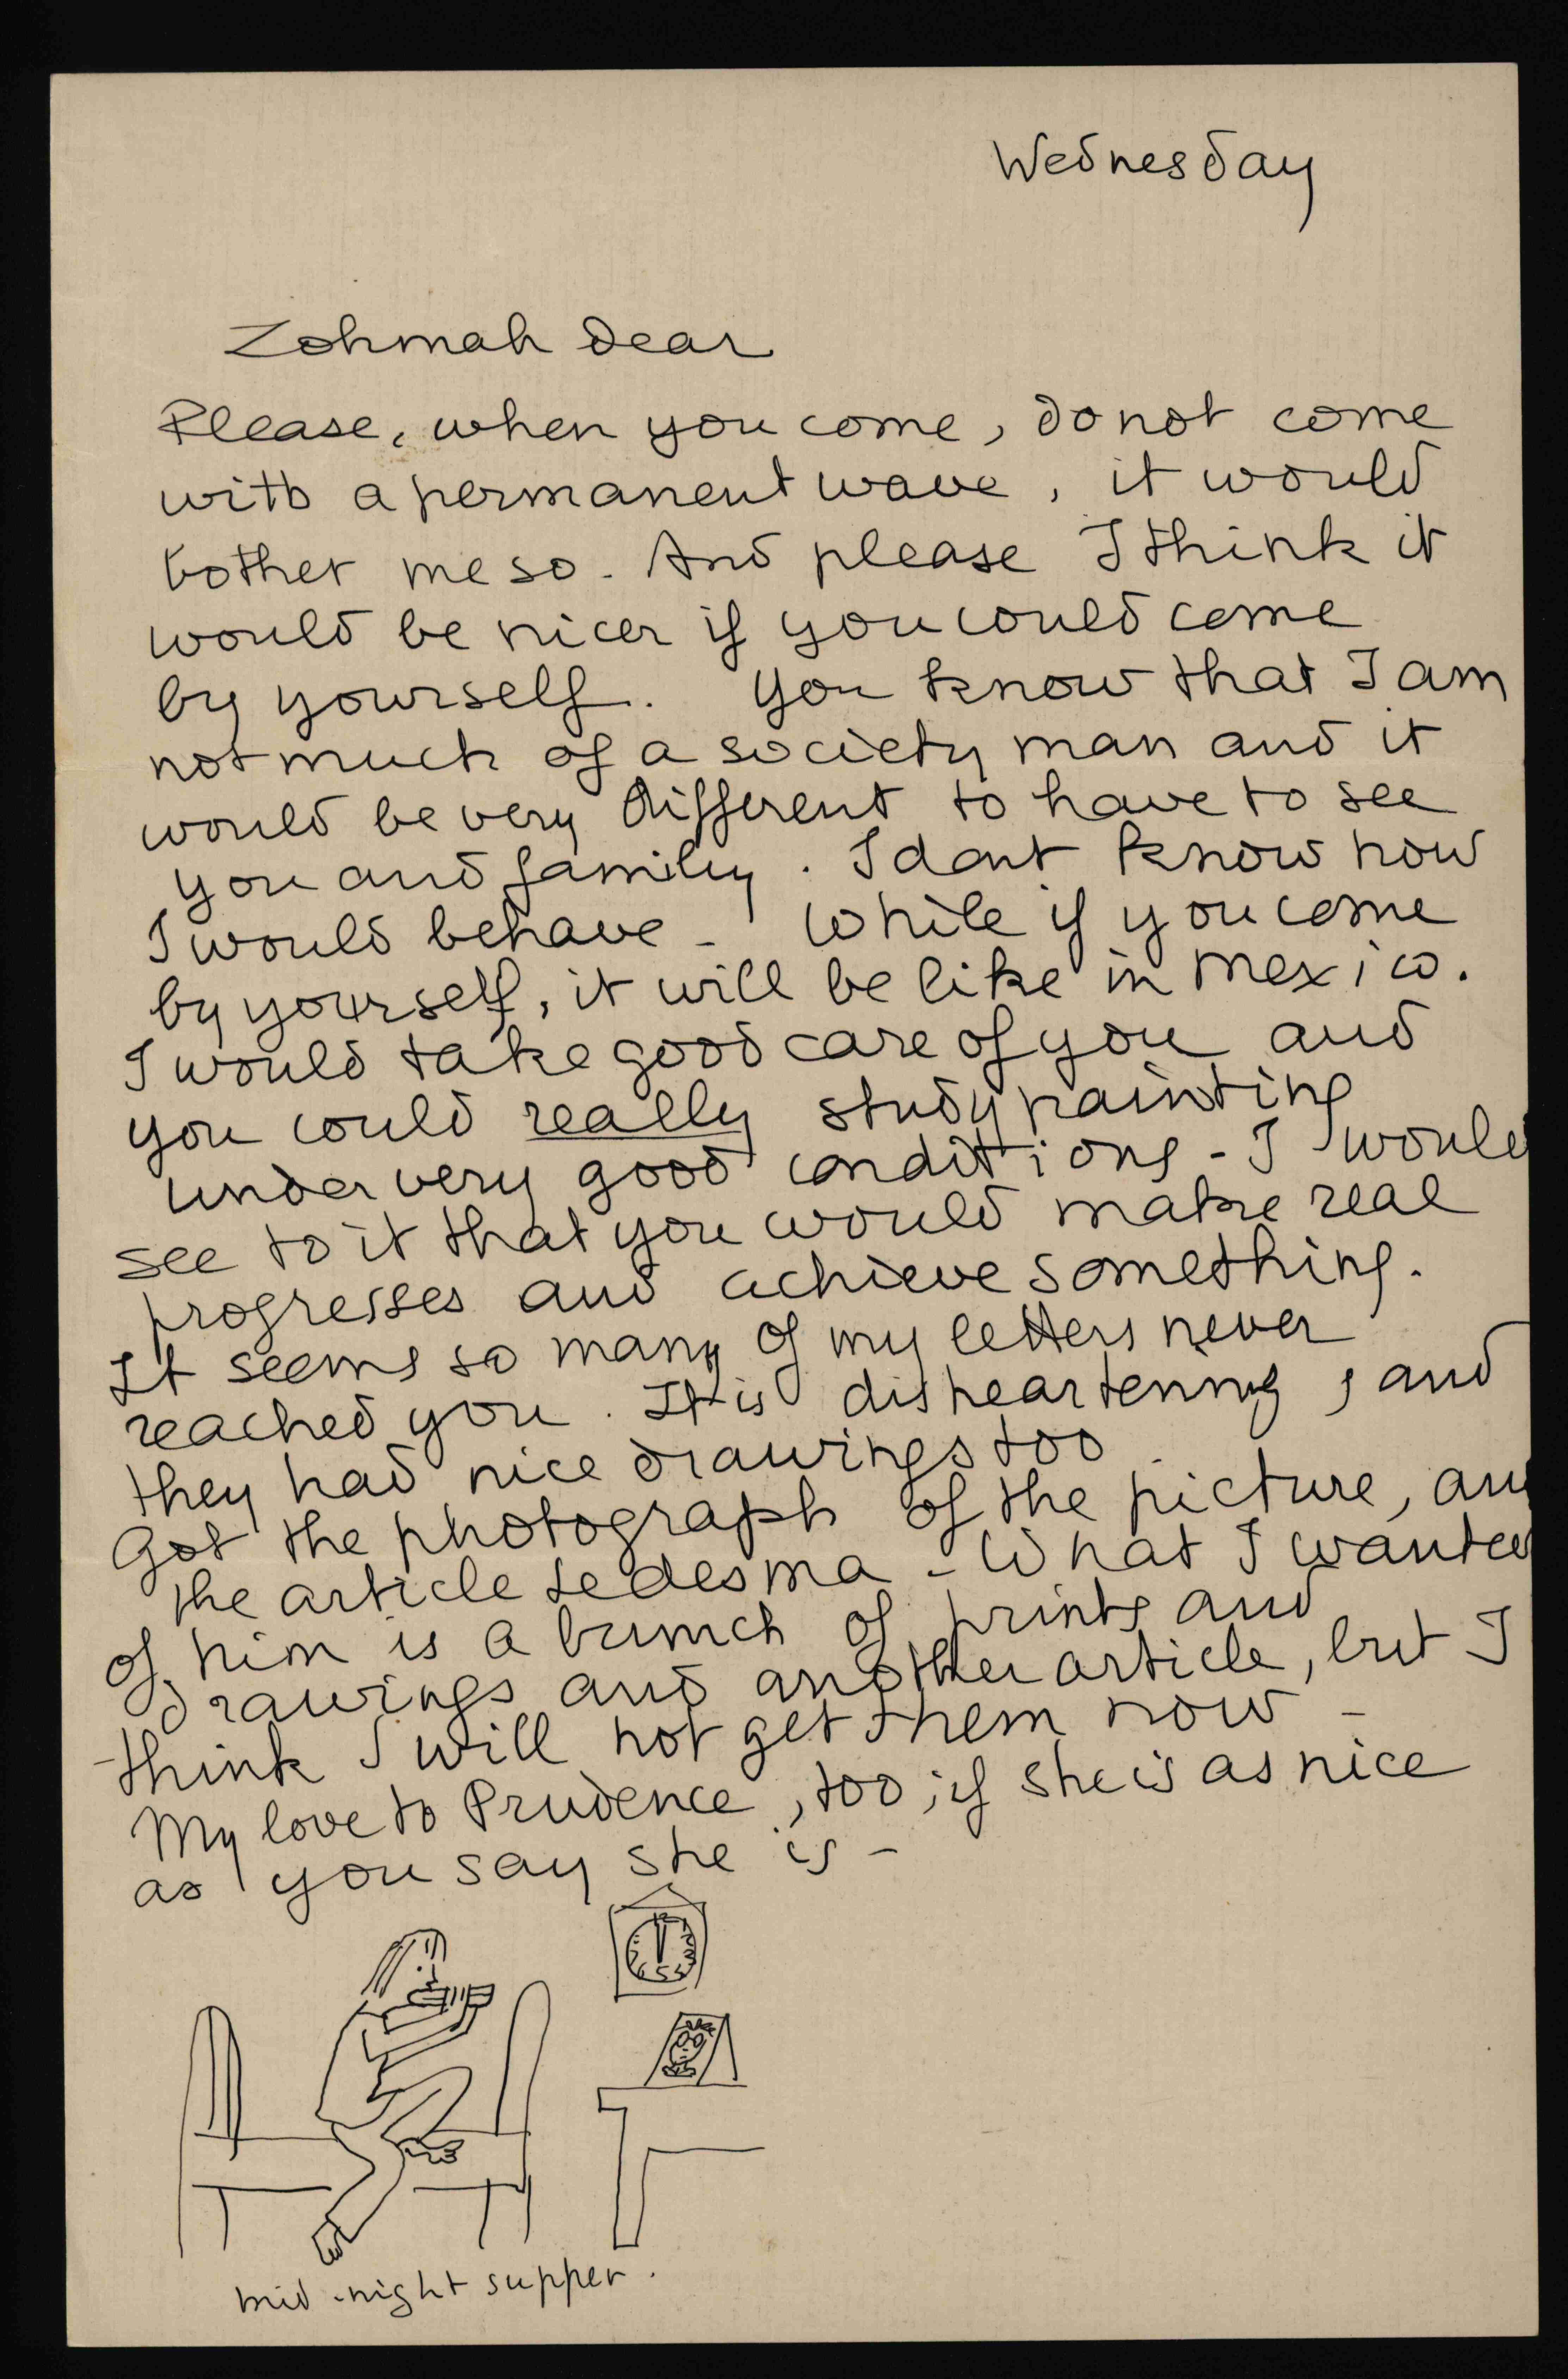 Wednesday
Zohmah dear
Please, when you come, do not come
with a permanent wave, it would
bother me so. And please I think it
would be nicer if you could come
by yourself. You know that I am
not much of a society man and it
would be very different to have to see
you and family. I dont know how
I would behave - While if you come
by yourself, it will be like in Mexico.
I would take good care of you and
you could really study painting
under very good conditions - I would
see to it that you would make real
progresses and achieve something.
It seems so many of my letters never
reached you. It is disheartening, and
they had nice drawings too
Got the photograph of the picture, and
the article Ledesma - What I wanted
of him is a bunch of prints and
drawings and another article, but I
think I will not get them now -
My love to Prudence, too, if she is as nice
as you say she is -
12
6 5
mid-night supper.